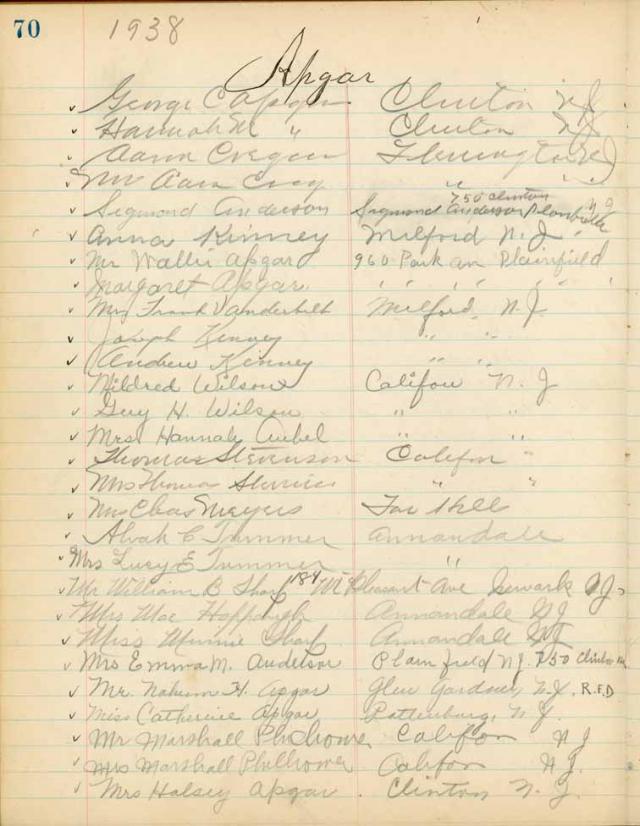 70 1938
Apgar
✓ George C Apgar Clinton NJ
✓ Hannah M " Clinton NJ
✓ Aaron Cregar Flemington
✓ Mr Aaron " "
✓ Sigmund Anderson Sigmund Anderson 750 Clinton Plainfield NJ
✓ Anna Kinney Milford N. J.
✓ Mr Wallis Apgar 960 Park av Plainfield
✓ Margaret Apgar " " " "
✓ Mrs Frank Vanderbilt Milford, N. J.
✓ Joseph Kinney " "
✓ Andrew Kinney " "
✓ Mildred Wilson Califon N. J
✓ Guy H. Wilson " "
✓ Mrs Hannah Aubel " "
✓ Thomas Stevenson Califon "
✓ Mrs Thomas " "
✓ Mrs Chas Meyers Far Hill
✓ Alvah C Trimmer Annandale
✓ Mrs Lucy E Trimmer "
✓ Mr William B Sharf 184 Mt Pleasant Ave Newark NJ
✓ Mrs Mae Hoppaugh Annandale NJ
✓ Miss Minnie Sharf Annandale NJ
✓ Mrs Emma M. Anderson Plainfield NJ. 750 Clinton Av
✓ Mr. Nahum H. Apgar Glen Gardner, N.J. R.F.D
✓ Miss Catherine Apgar Pattenburg, N. J.
✓ Mr Marshall Philhower Califon N J
✓ Mrs Marshall Philhower Califon N. J.
✓ Mrs Halsey Apgar. Clinton N. J.